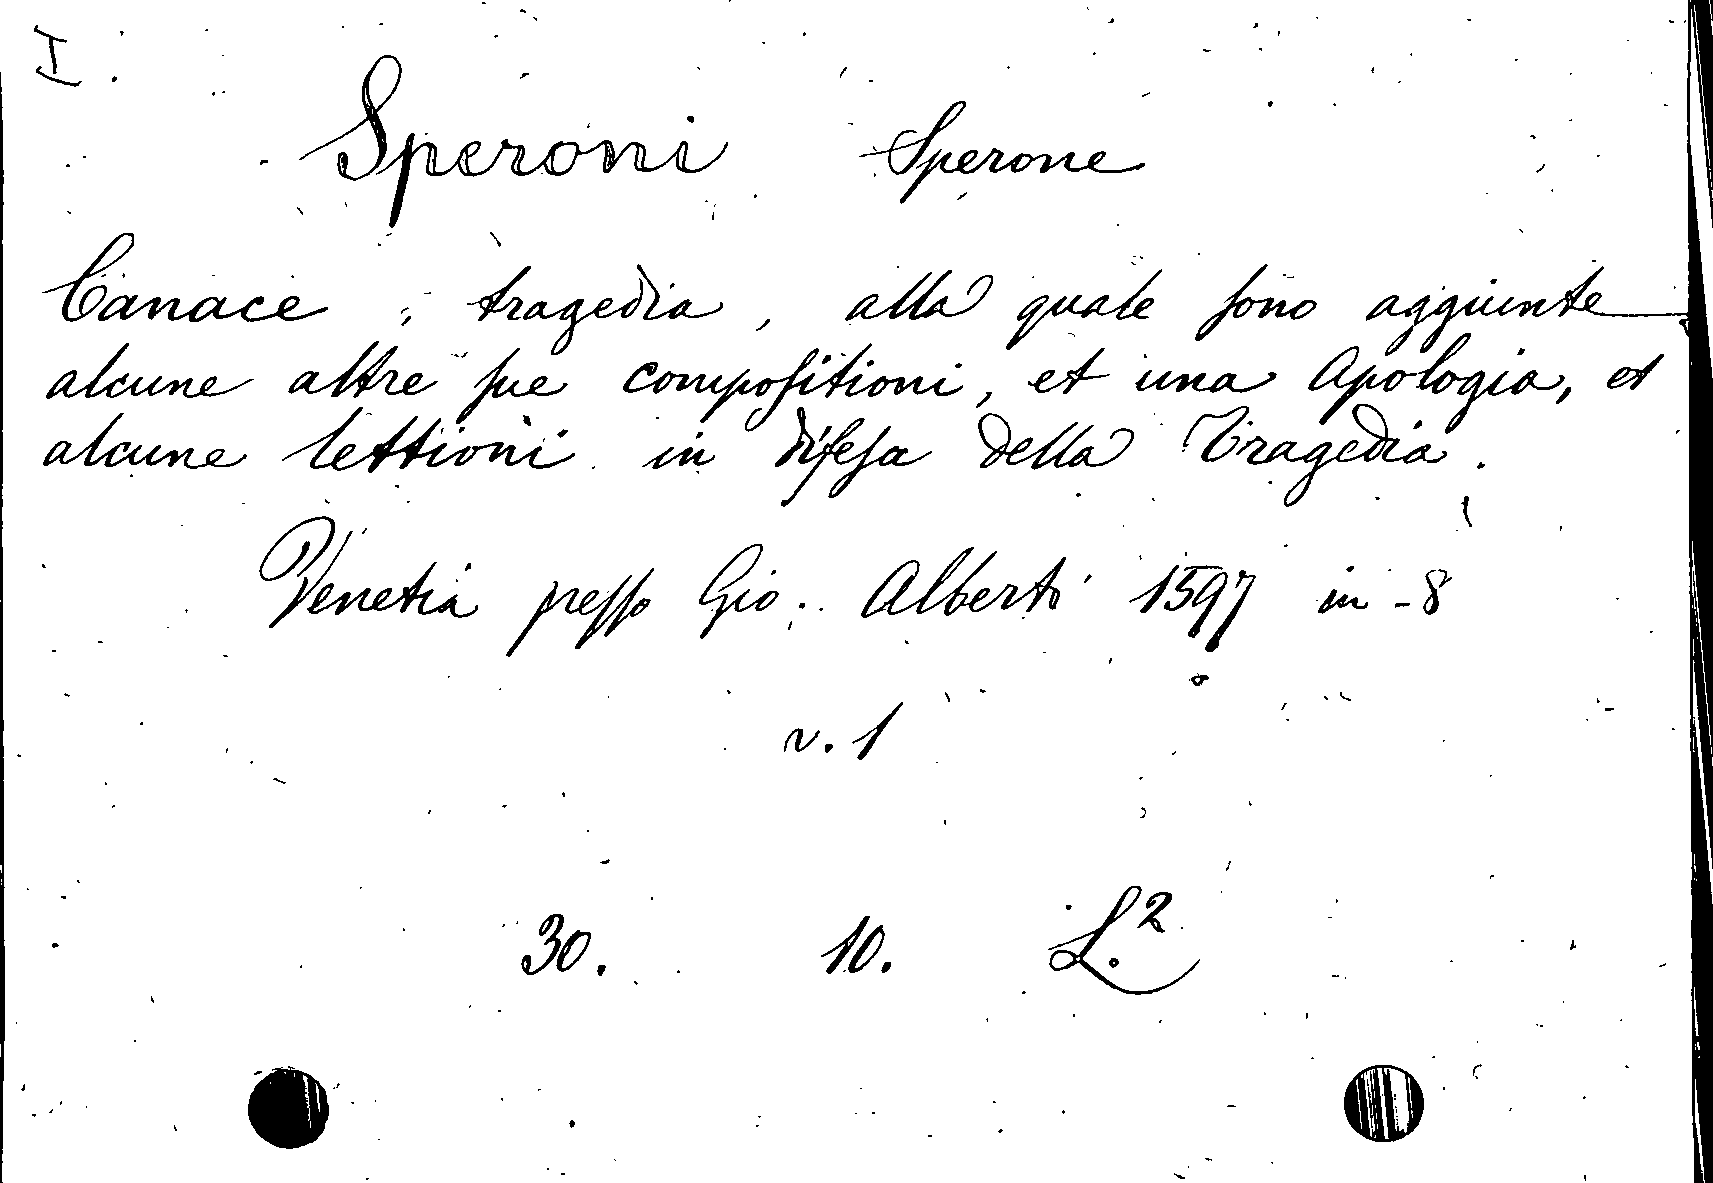 I.
Speroni Sperone
Canace, tragedia, alla quale sono aggiunte
alcune altre sue compositioni, et una Apologia, et
alcune lettioni in difesa della Tragedia.
Venetia presso Gio. Alberti 1597 in-8
v. 1
30. 10. L.2